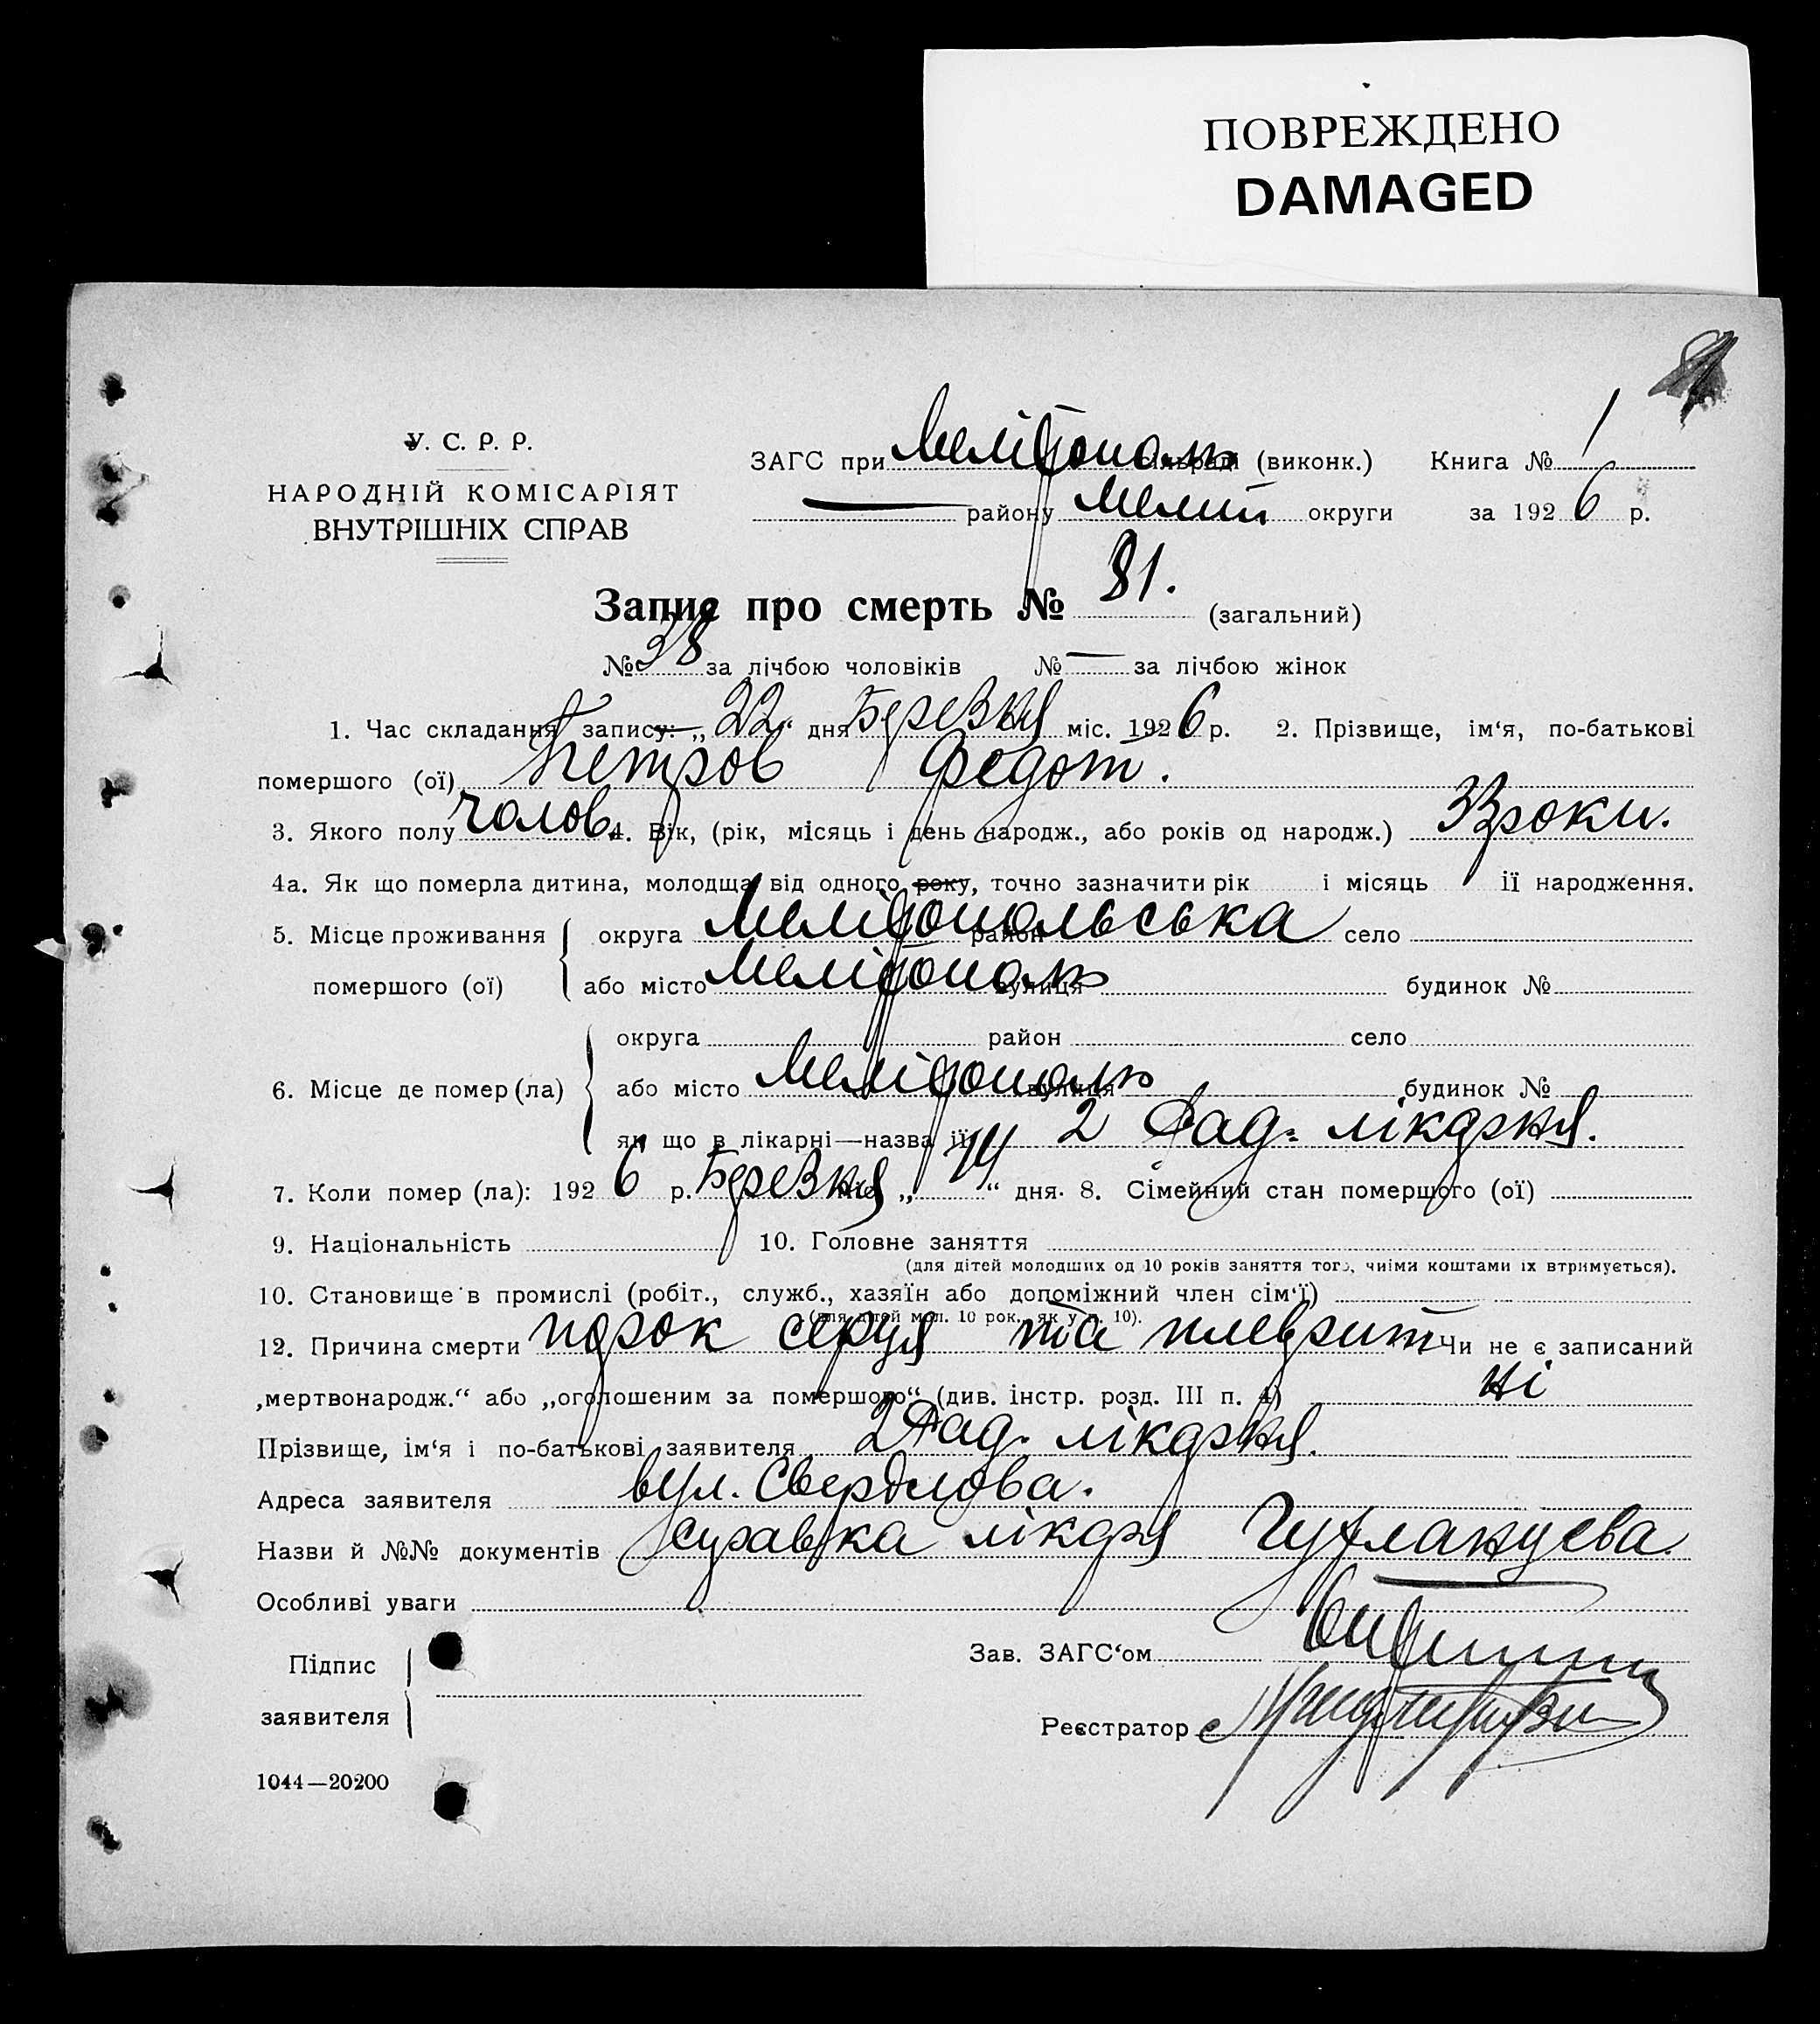 ПОВРЕЖДЕНО
DAMAGED
У. С. Р. Р.
НАРОДНІЙ КОМІСАРІЯТ
ВНУТРІШНІХ СПРАВ
ЗАГС при Мелітополь сільраді (виконк.) Книга № 1
— району Мелит округи за 1926 р.
Запис про смерть № 81. (загальний)
№ 38 за лічбою чоловіків № — за лічбою жінок
1. Час складання запису: „22“ дня Березня міс. 1926 р. 2. Прізвище, ім‘я, по-батькові
помершого (ої) Петров Федот.
3. Якого полу чолов. 4. Вік, (рік, місяць і день народж., або років од народж.) 33 роки.
4а. Як що померла дитина, молодща від одного року, точно зазначити рік і місяць її народження.
5. Місце проживання помершого (ої) округа Мелітопольська район село
або місто Мелітополь вулиця будинок №
6. Місце де помер (ла) округа район село
або місто Мелітополь вулиця будинок №
як що в лікарні—назва її 2 Рад. лікарня.
7. Коли помер (ла): 1926 р. Березня міс. „14“ дня. 8. Сімейний стан помершого (ої)
9. Національність 10. Головне заняття
(для дітей молодших од 10 років заняття того, чиїми коштами їх втримується).
10. Становище в промислі (робіт., служб., хазяїн або допоміжний член сім‘ї)
(для дітей мол. 10 рок., як у п. 10).
12. Причина смерти порок серця та плеврит Чи не є записаний
„мертвонародж.“ або „оголошеним за помершого“ (див. інстр. розд. III п. 4) ні
Прізвище, ім‘я і по-батькові заявителя 2 Рад. лікарня.
Адреса заявителя вул. Свердлова.
Назви й №№ документів справка лікаря
Особливі уваги
Підпис заявителя
Зав. ЗАГС‘ом
Реєстратор
1044—20200